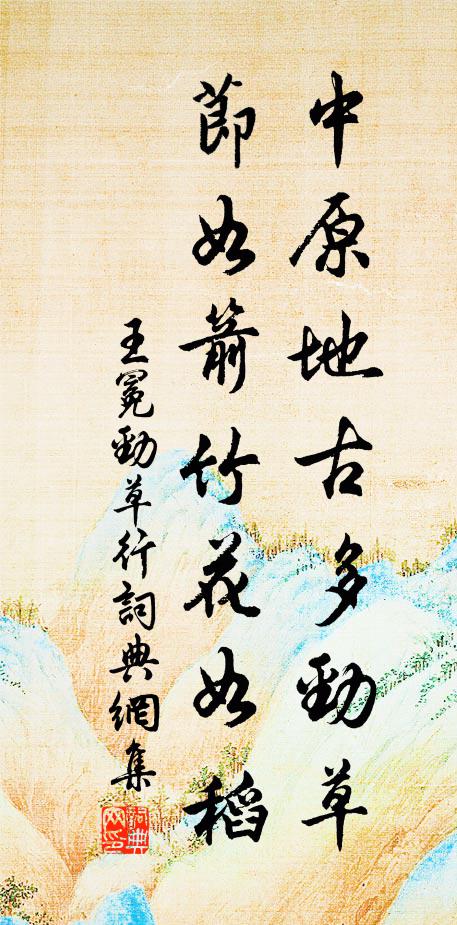 中原地古多勁草
節如箭竹花如稻
王冕勁草行詞典網集
詞典
网印